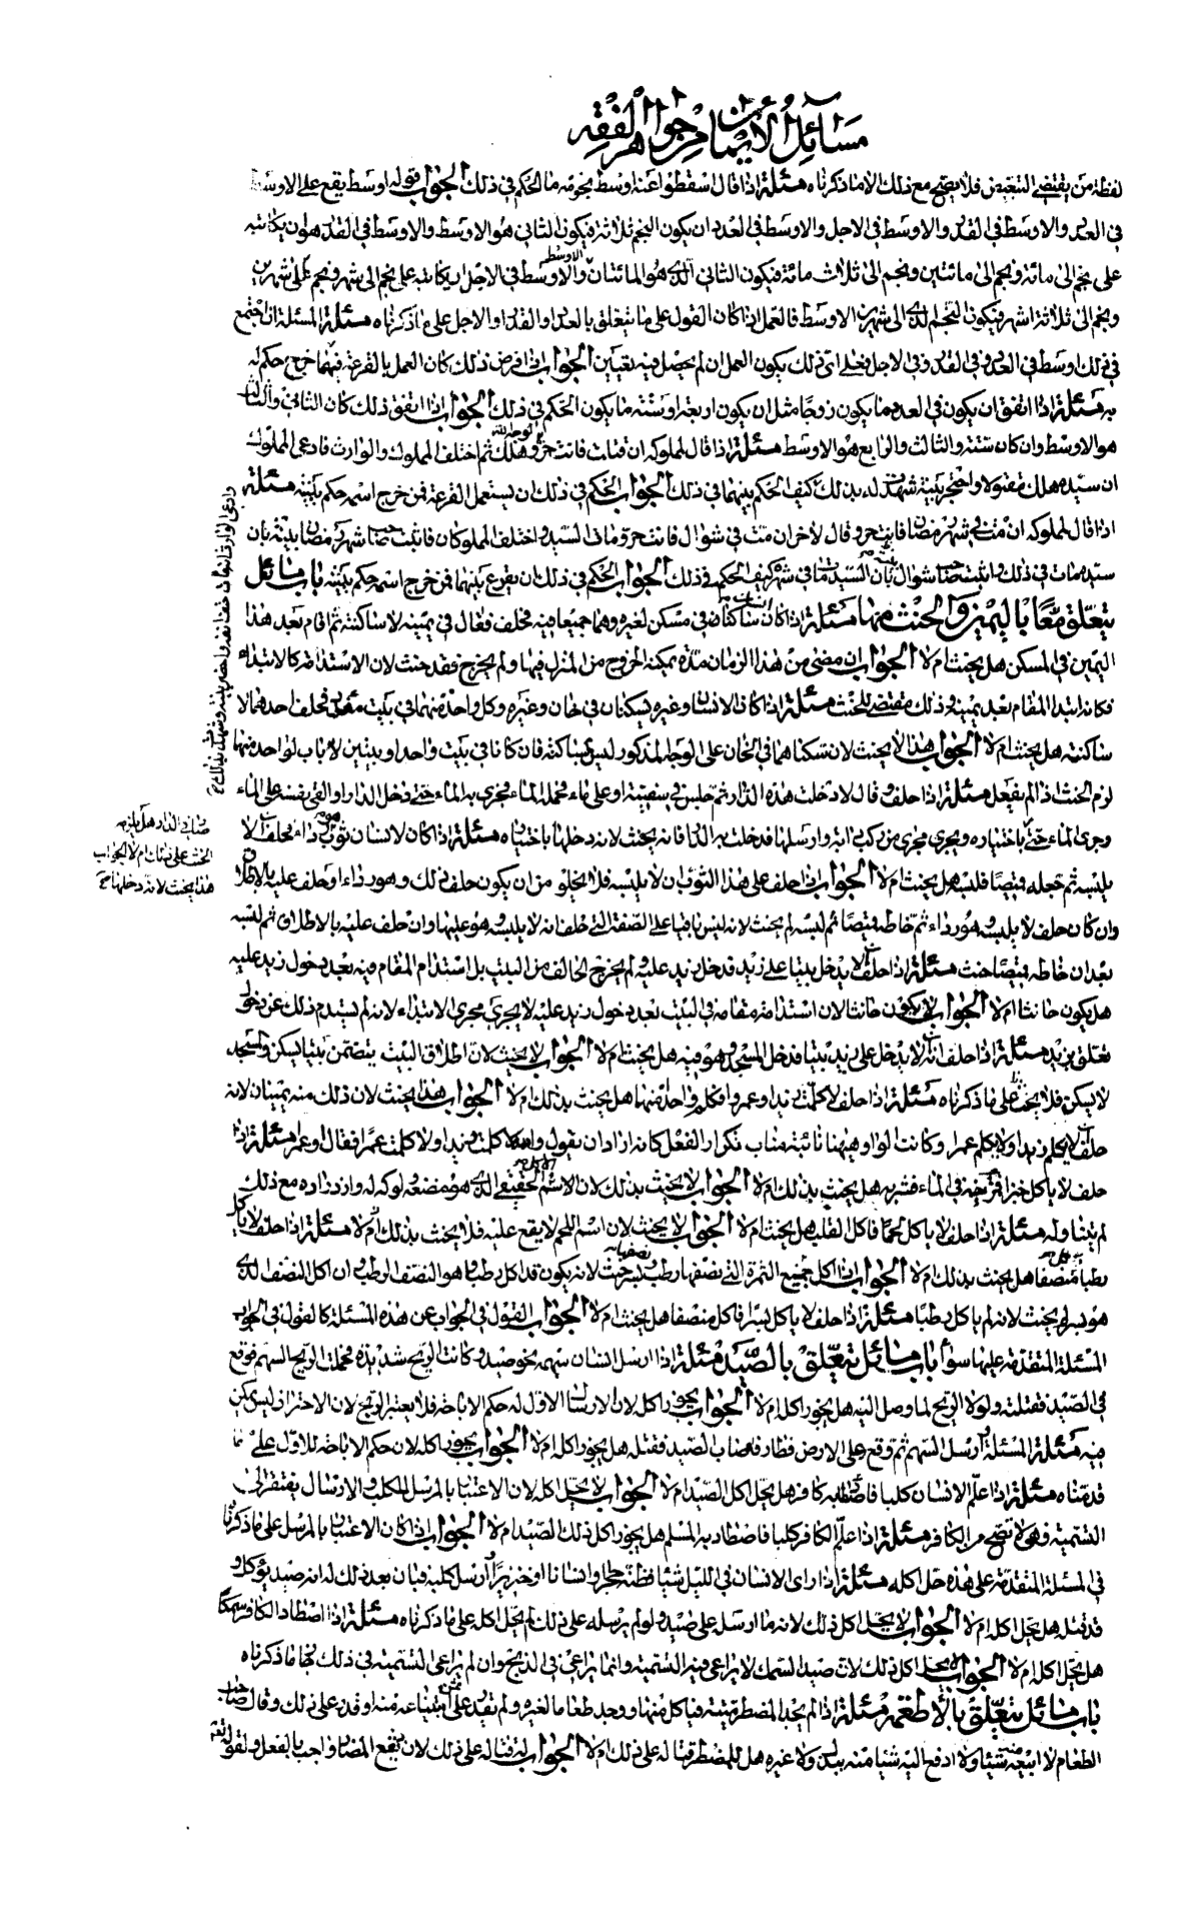 مسائل الأيمان من جواهر الفقه
لفظة من يقتضي التبعيض فلا يصح مع ذلك الا ما ذكرناه مسئلة اذا قال اسقطوا عنه اوسط نجومه ما الحكم في ذلك الجواب قوله اوسط يقع على الاوسط
في العدد والاوسط في القدر والاوسط في الاجل والاوسط في العدد ان يكون النجم ثلاثة فيكون الثاني هو الاوسط والاوسط في القدر هو ان يكاتبه
على نجم الى مائة ونجم الى مائتين ونجم الى ثلاث مائة فيكون الثاني الذي هو المائتان الاوسط والاوسط في الاجل ان يكاتبه على نجم الى شهر ونجم على شهرين
ونجم الى ثلاثة اشهر فيكون النجم الذي الى شهرين الاوسط فالعمل اذا كان القول على ما يتعلق بالعدد او القدر او الاجل على ما ذكرناه مسئلة المسئلة ان اجتمع
في ذلك اوسط في العدد وفي القدر وفي الاجل فعلى اي ذلك يكون العمل ان لم يحصل فيه تعيين الجواب اذا فرض ذلك كان العمل بالقرعة فيهما خرج حكم له
به مسئلة اذا اتفق ان يكون في العدد ما يكون زوجا مثل ان يكون اربعة او ستة ما يكون الحكم في ذلك الجواب اذا اتفق ذلك كان الثاني والثالث
هو الاوسط وان كان ستة والثالث والرابع هو الاوسط مسئلة اذا قال لمملوكه ان قتلت فانت حر وهلك ثم اختلف المملوك والوارث فادعى المملوك
ان سيده هلك مقتولا واحضر بينة شهدت له بذلك كيف الحكم بينهما في ذلك الجواب الحكم في ذلك ان يستعمل القرعة فمن خرج اسمه حكم ببينته مسئلة
اذا قال لمملوكه ان مت في شهر رمضان فانت حر وقال لاخر ان مت في شوال فانت حر ومات السيد واختلف المملوكان فاثبت صاحب شهر رمضان بينة بان
سيده مات في ذلك واثبت صاحب شوال بينة بان السيد مات في شهره كيف الحكم في ذلك الجواب الحكم في ذلك ان يقرع بينهما فمن خرج اسمه حكم ببينته باب مسائل
يتعلق باليمين والحنث منها مسئلة اذا كان انسان ساكنا في مسكن لغيره وهما جميعا فيه فحلف فقال في يمينه لا ساكنته ثم اقام بعد هذا
اليمين في المسكن هل يحنث ام لا الجواب ان مضى من هذا الزمان مدة يمكنه الخروج من المنزل فيها ولم يخرج فقد حنث لان الاستدامة كالابتداء
فكانه ابتدا المقام بعد يمينه وذلك مقتضى للحنث مسئلة اذا كان الانسان وغيره يسكنان في خان وغيره وكل واحد منهما في بيت مفرد فحلف احدهما لا
ساكنته هل يحنث ام لا الجواب هذا لا يحنث لان سكناهما في الخان على الوجه المذكور ليس بمساكنة فان كانا في بيت واحد او بيتين لا باب لواحد منهما
لزم الحنث اذا لم يفعل مسئلة اذا حلف وقال لا دخلت هذه الدار ثم جلس في سفينة او على ماء فحمله الماء فجرى به الماء حتى دخل الدار او القى نفسه على الماء
وجرى الماء حتى باختياره ويجري مجرى من ركب دابة وارسلها فدخلت به الدار فانه يحنث لانه دخلها باختياره مسئلة اذا كان لانسان ثوب هو رداء فحلف ان لا
يلبسه ثم جعله قميصا فلبسه هل يحنث ام لا الجواب اذا حلف على هذا الثوب ان لا يلبسه فلا يخلو من ان يكون حلف ذلك وهو رداء او حلف عليه بالاطلاق
وان كان حلف لا يلبسه وهو رداء ثم خاطه قميصا ثم لبسه لم يحنث لانه ليس باقيا على الصفة التي حلف انه لا يلبسه وهو عليها وان حلف عليه بالاطلاق ثم لبسه
بعد ان خاطه قميصا حنث مسئلة اذا حلف لا يدخل بيتا على زيد فدخل زيد عليه ولم يخرج الحالف من البيت بل استدام المقام فيه بعد دخول زيد عليه
هل يكون حانثا ام لا الجواب لا يكون حانثا لان استدامة مقامه في البيت بعد دخول زيد عليه لا يجري مجرى الابتداء لانه لم يستدم ذلك عن دخول
تعلق بزيد مسئلة اذا حلف انه لا يدخل على زيد بيتا فدخل المسجد وهو فيه هل يحنث ام لا الجواب لا يحنث لان اطلاق البيت يتضمن بيتا يسكن والمسجد
لا يسكن فلا يحنث على ما ذكرناه مسئلة اذا حلف لا كلمت زيدا وعمروا فكلم واحدا منهما هل يحنث بذلك ام لا الجواب هذا يحنث لان ذلك منه يمينان لانه
حلف لا يكلم زيدا ولا يكلم عمرا وكانت الواو هيهنا نائبة مناب تكرار الفعل كانه اراد ان يقول والله لا كلمت زيدا ولا كلمت عمرا فقال او عمرا مسئلة اذا
حلف لا ياكل خبزا فرمي به في الماء فشربه هل يحنث بذلك ام لا الجواب لا يحنث بذلك لان الاسم الاكل الحقيقي الذي هو مضغه ولوكه له وازدراده مع ذلك
لم يتناوله مسئلة اذا حلف لا ياكل لحما فاكل القلب هل يحنث ام لا الجواب لا يحنث لان اسم اللحم لا يقع عليه فلا يحنث بذلك ام لا مسئلة اذا حلف لا ياكل
رطبا فاكل منصفا هل يحنث بذلك ام لا الجواب اذا اكل جميع التمرة التي نصفها رطب ونصفها بسر حنث لانه يكون قد اكل رطبا وهو النصف الرطب وان اكل النصف الذي
هو بسر لم يحنث لانه لم ياكل رطبا مسئلة اذا حلف لا ياكل بسرا فاكل منصفا هل يحنث ام لا الجواب القول في الجواب عن هذه المسئلة كالقول في الجواب
المسئلة المتقدمة عليها سواء باب مسائل تتعلق بالصيد مسئلة اذا ارسل انسان سهمه نحو صيد وكانت الريح شديدة فحملت الريح السهم فوقع
في الصيد فقتلته ولولا الريح لما وصل اليه هل يجوز اكله ام لا الجواب يجوز اكله لان الارسال الاول له حكم الاباحة فلا يعتبر الريح لان الاحتراز ليس يمكن
منه مسئلة المسئلة وارسل السهم ثم وقع على الارض فطار فاصاب الصيد فقتله هل يجوز اكله ام لا الجواب يجوز اكله لان حكم الاباحة للاول على ما
قدمناه مسئلة اذا علم الانسان كلبا فاصطاد به كافر هل يحل اكل الصيد ام لا الجواب لا يحل اكله لان الاعتبار بالمرسل للكلب والارسال يفتقر الى
التسمية وهي لا تصح من الكافر مسئلة اذا علم الكافر كلبا فاصطاد به المسلم هل يجوز اكل ذلك الصيد ام لا الجواب اذا كان الاعتبار بالمرسل على ما ذكرنا
في المسئلة المتقدمة على هذه حل اكله مسئلة اذا راى الانسان في الليل شيئا فظنه حجرا وانسانا او خنزيرا وارسل كلبه فبان بعد ذلك له انه صيد يؤكل و
قد قتله هل يحل اكله ام لا الجواب لا يحل اكل ذلك لانه ما ارسله على صيد ولو لم يرسله على ذلك لم يحل اكله على ما ذكرناه مسئلة اذا اصطاد الكافر سمكا
هل يحل اكله ام لا الجواب يحل اكل ذلك لان صيد السمك لا يراعى فيه التسمية وانما يراعى في الذبح وان لم يراعى التسمية في ذلك كما ما ذكرناه
باب مسائل تتعلق بالاطعمة مسئلة اذا لم يجد المضطر ميتة فياكل منها ووجد طعاما لغيره ولم يقدر على ثمن ابتياعه منه او قدر على ذلك وقال صاحب
الطعام لا ابيعه منه شيئا ولا ادفع اليه شيئا منه ببدل ولا غيره هل للمضطر قتاله على ذلك ام لا الجواب له قتاله على ذلك لان دفع المضار واجب بالفعل ولقوله
وادعى الوارث انه مات حتف انفه واحضر بينة وشهدت بذلك
صار في الدار هل يلزمه
الحنث على ذلك ام لا الجواب
هذا يحنث لانه دخلها